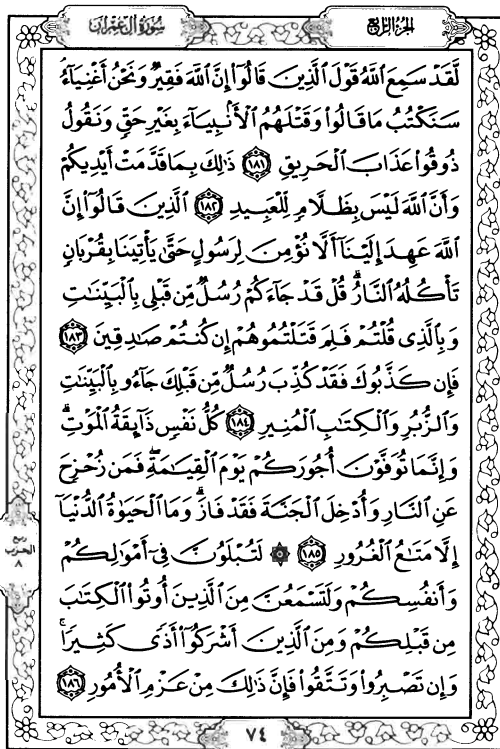 سُورَةُ آلِ عِمْرَان
الجزء الرابع
لَّقَدْ سَمِعَ اللَّهُ قَوْلَ الَّذِينَ قَالُوا إِنَّ اللَّهَ فَقِيرٌ وَنَحْنُ أَغْنِيَاءُ
سَنَكْتُبُ مَا قَالُوا وَقَتْلَهُمُ الْأَنْبِيَاءَ بِغَيْرِ حَقٍّ وَنَقُولُ
ذُوقُوا عَذَابَ الْحَرِيقِ ١٨١ ذَٰلِكَ بِمَا قَدَّمَتْ أَيْدِيكُمْ
وَأَنَّ اللَّهَ لَيْسَ بِظَلَّامٍ لِّلْعَبِيدِ ١٨٢ الَّذِينَ قَالُوا إِنَّ
اللَّهَ عَهِدَ إِلَيْنَا أَلَّا نُؤْمِنَ لِرَسُولٍ حَتَّىٰ يَأْتِيَنَا بِقُرْبَانٍ
تَأْكُلُهُ النَّارُ ۗ قُلْ قَدْ جَاءَكُمْ رُسُلٌ مِّن قَبْلِي بِالْبَيِّنَاتِ
وَبِالَّذِي قُلْتُمْ فَلِمَ قَتَلْتُمُوهُمْ إِن كُنتُمْ صَادِقِينَ ١٨٣
فَإِن كَذَّبُوكَ فَقَدْ كُذِّبَ رُسُلٌ مِّن قَبْلِكَ جَاءُو بِالْبَيِّنَاتِ
وَالزُّبُرِ وَالْكِتَابِ الْمُنِيرِ ١٨٤ كُلُّ نَفْسٍ ذَائِقَةُ الْمَوْتِ ۗ
وَإِنَّمَا تُوَفَّوْنَ أُجُورَكُمْ يَوْمَ الْقِيَامَةِ ۖ فَمَن زُحْزِحَ
عَنِ النَّارِ وَأُدْخِلَ الْجَنَّةَ فَقَدْ فَازَ ۗ وَمَا الْحَيَوٰةُ الدُّنْيَا
إِلَّا مَتَاعُ الْغُرُورِ ١٨٥ ۞ لَتُبْلَوُنَّ فِي أَمْوَالِكُمْ
وَأَنفُسِكُمْ وَلَتَسْمَعُنَّ مِنَ الَّذِينَ أُوتُوا الْكِتَابَ
مِن قَبْلِكُمْ وَمِنَ الَّذِينَ أَشْرَكُوا أَذًى كَثِيرًا ۚ
وَإِن تَصْبِرُوا وَتَتَّقُوا فَإِنَّ ذَٰلِكَ مِنْ عَزْمِ الْأُمُورِ ١٨٦
ربع
الحزب
٨
٧٤